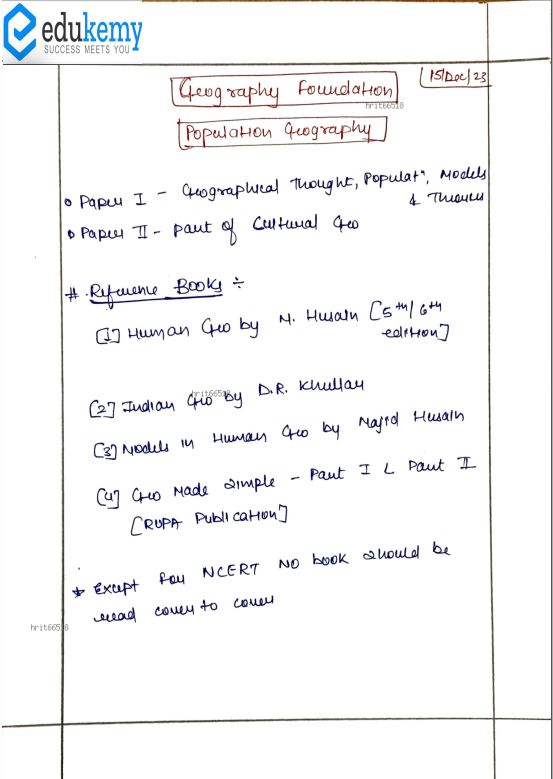 edukemy
SUCCESS MEETS YOU
15/Dec/23
Geography Foundation
hrit66518
Population Geography
Paper I - Geographical Thought, Populatⁿ, Models
& Theories
Paper II - Part of Cultural Geo
# Reference Books ÷
[1] Human Geo by M. Husain [5th/6th
edition]
hrit66518
[2] Indian Geo by D.R. Khullar
[3] Models in Human Geo by Majid Husain
[4] Geo Made Simple - Part I & Part II
[RUPA Publication]
* Except for NCERT No book should be
read cover to cover
hrit66518